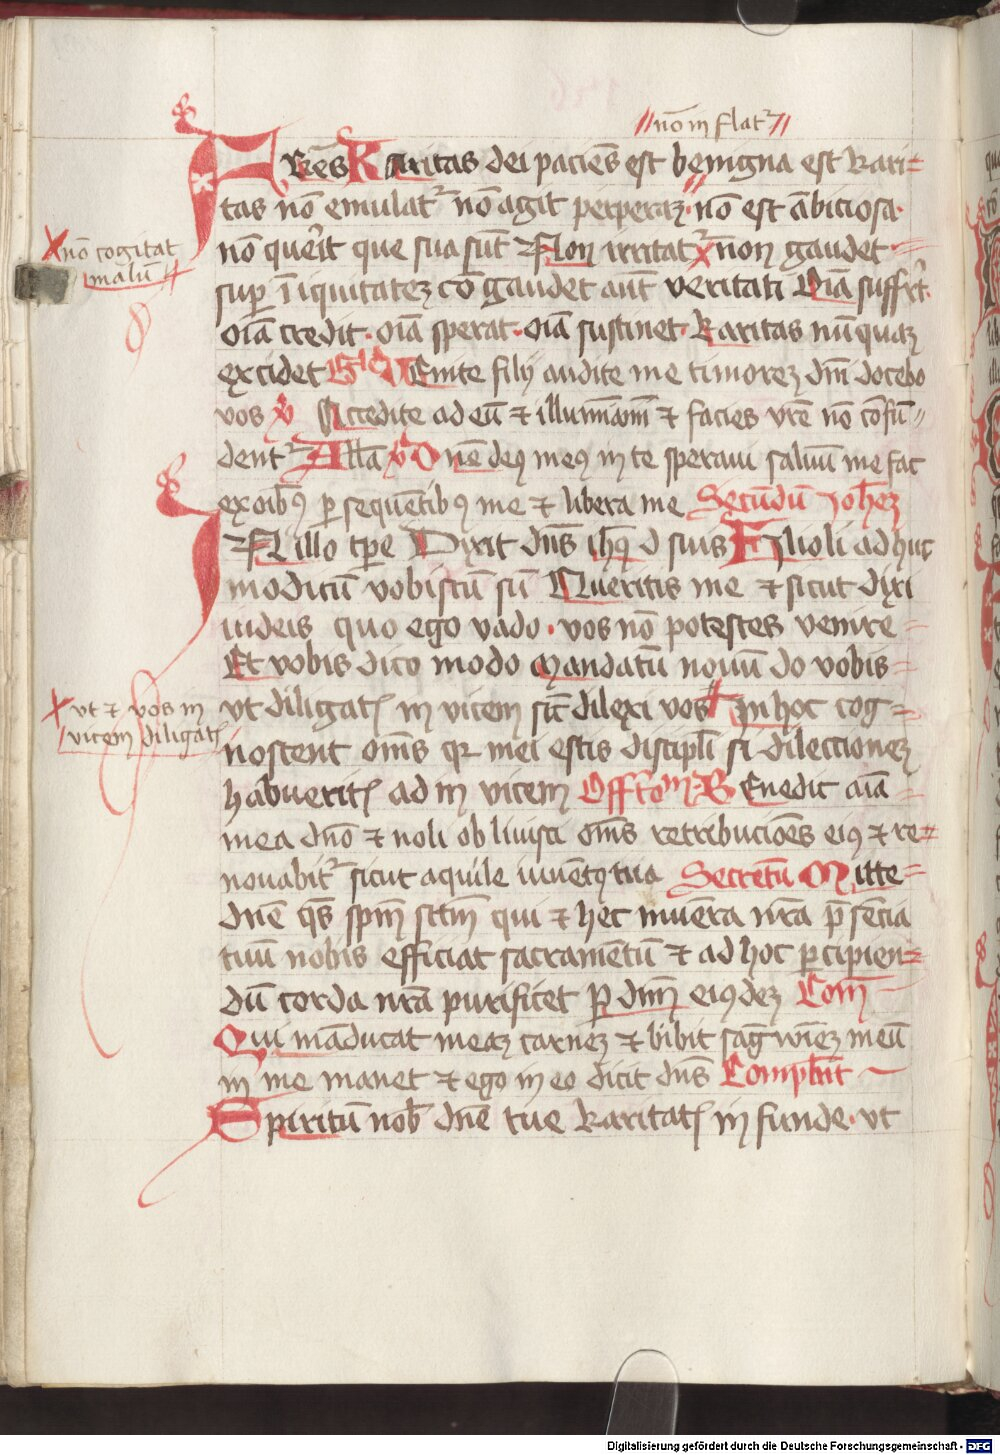 //nō inflat̉//
Frēs Karitas dei paciēs est benigna est kari=
tas nō emulat̉ nō agit perperaꝫ // nō est ābiciosa·
nō querit que sua sūt Non irritat̉ x non gaudet =
x nō cogitat
malū //
sup̱ īiquitateꝫ cōgaudet aūt veritati Oīa suffert·
oīa credit · oīa sperat · oīa sustinet · Karitas nūquaꝫ
excidet Gͥcͣ Venite filij audite me timoreꝫ dnī docebo
vos ℣ Accedite ad eū ⁊ illuminamī ⁊ facies vr̄e nō cōfun=
dent̉ Alla ℣ Dn̄e deꝰ meꝰ in te speraui saluū me fac
ex oībꝰ ꝑsequentibꝰ me ⁊ libera me Secūdū Johēꝫ
IN illo tp̄e Dixit dn̄s ihꝰ d suis Filioli adhuc
modicū vobiscū sū Queritis me ⁊ sicut dixi
iudeis quo ego vado · vos nō potestes venire =
Et vobis dico modo Mandatū nouū do vobis =
vt diligatꝭ in vicem sic̄ dilexi vos x In hoc cog=
x vt ⁊ vos in
vicem diligatꝭ
noscent om̄s qꝛ mei estis discip̄li si dileccioneꝫ
habueritꝭ ad in vicem Offtom Benedic aīa =
mea dn̄o ⁊ noli obliuisci om̄s retribucōes eiꝰ ⁊ re=
nouabit̉ sicut aquile iuuētꝰ tua Secretū Mitte=
dn̄e qs̄ spm̄ sctm̄ qui ⁊ hec muēra nr̄a p̄sēcia
tuū nobis efficiat sacramētū ⁊ ad hoc ꝑcipien=
dū corda nr̄a purificet ꝑ dnm̄ eiꝰdeꝫ Com̄
Qui māducat meaꝫ carneꝫ ⁊ bibit sāgwīeꝫ meū
in me manet ⁊ ego in eo dicit dn̄s Complent̄
Spiritū nob̄ dn̄e tue karitatꝭ infunde · vt
Digitalisierung gefördert durch die Deutsche Forschungsgemeinschaft - DFG